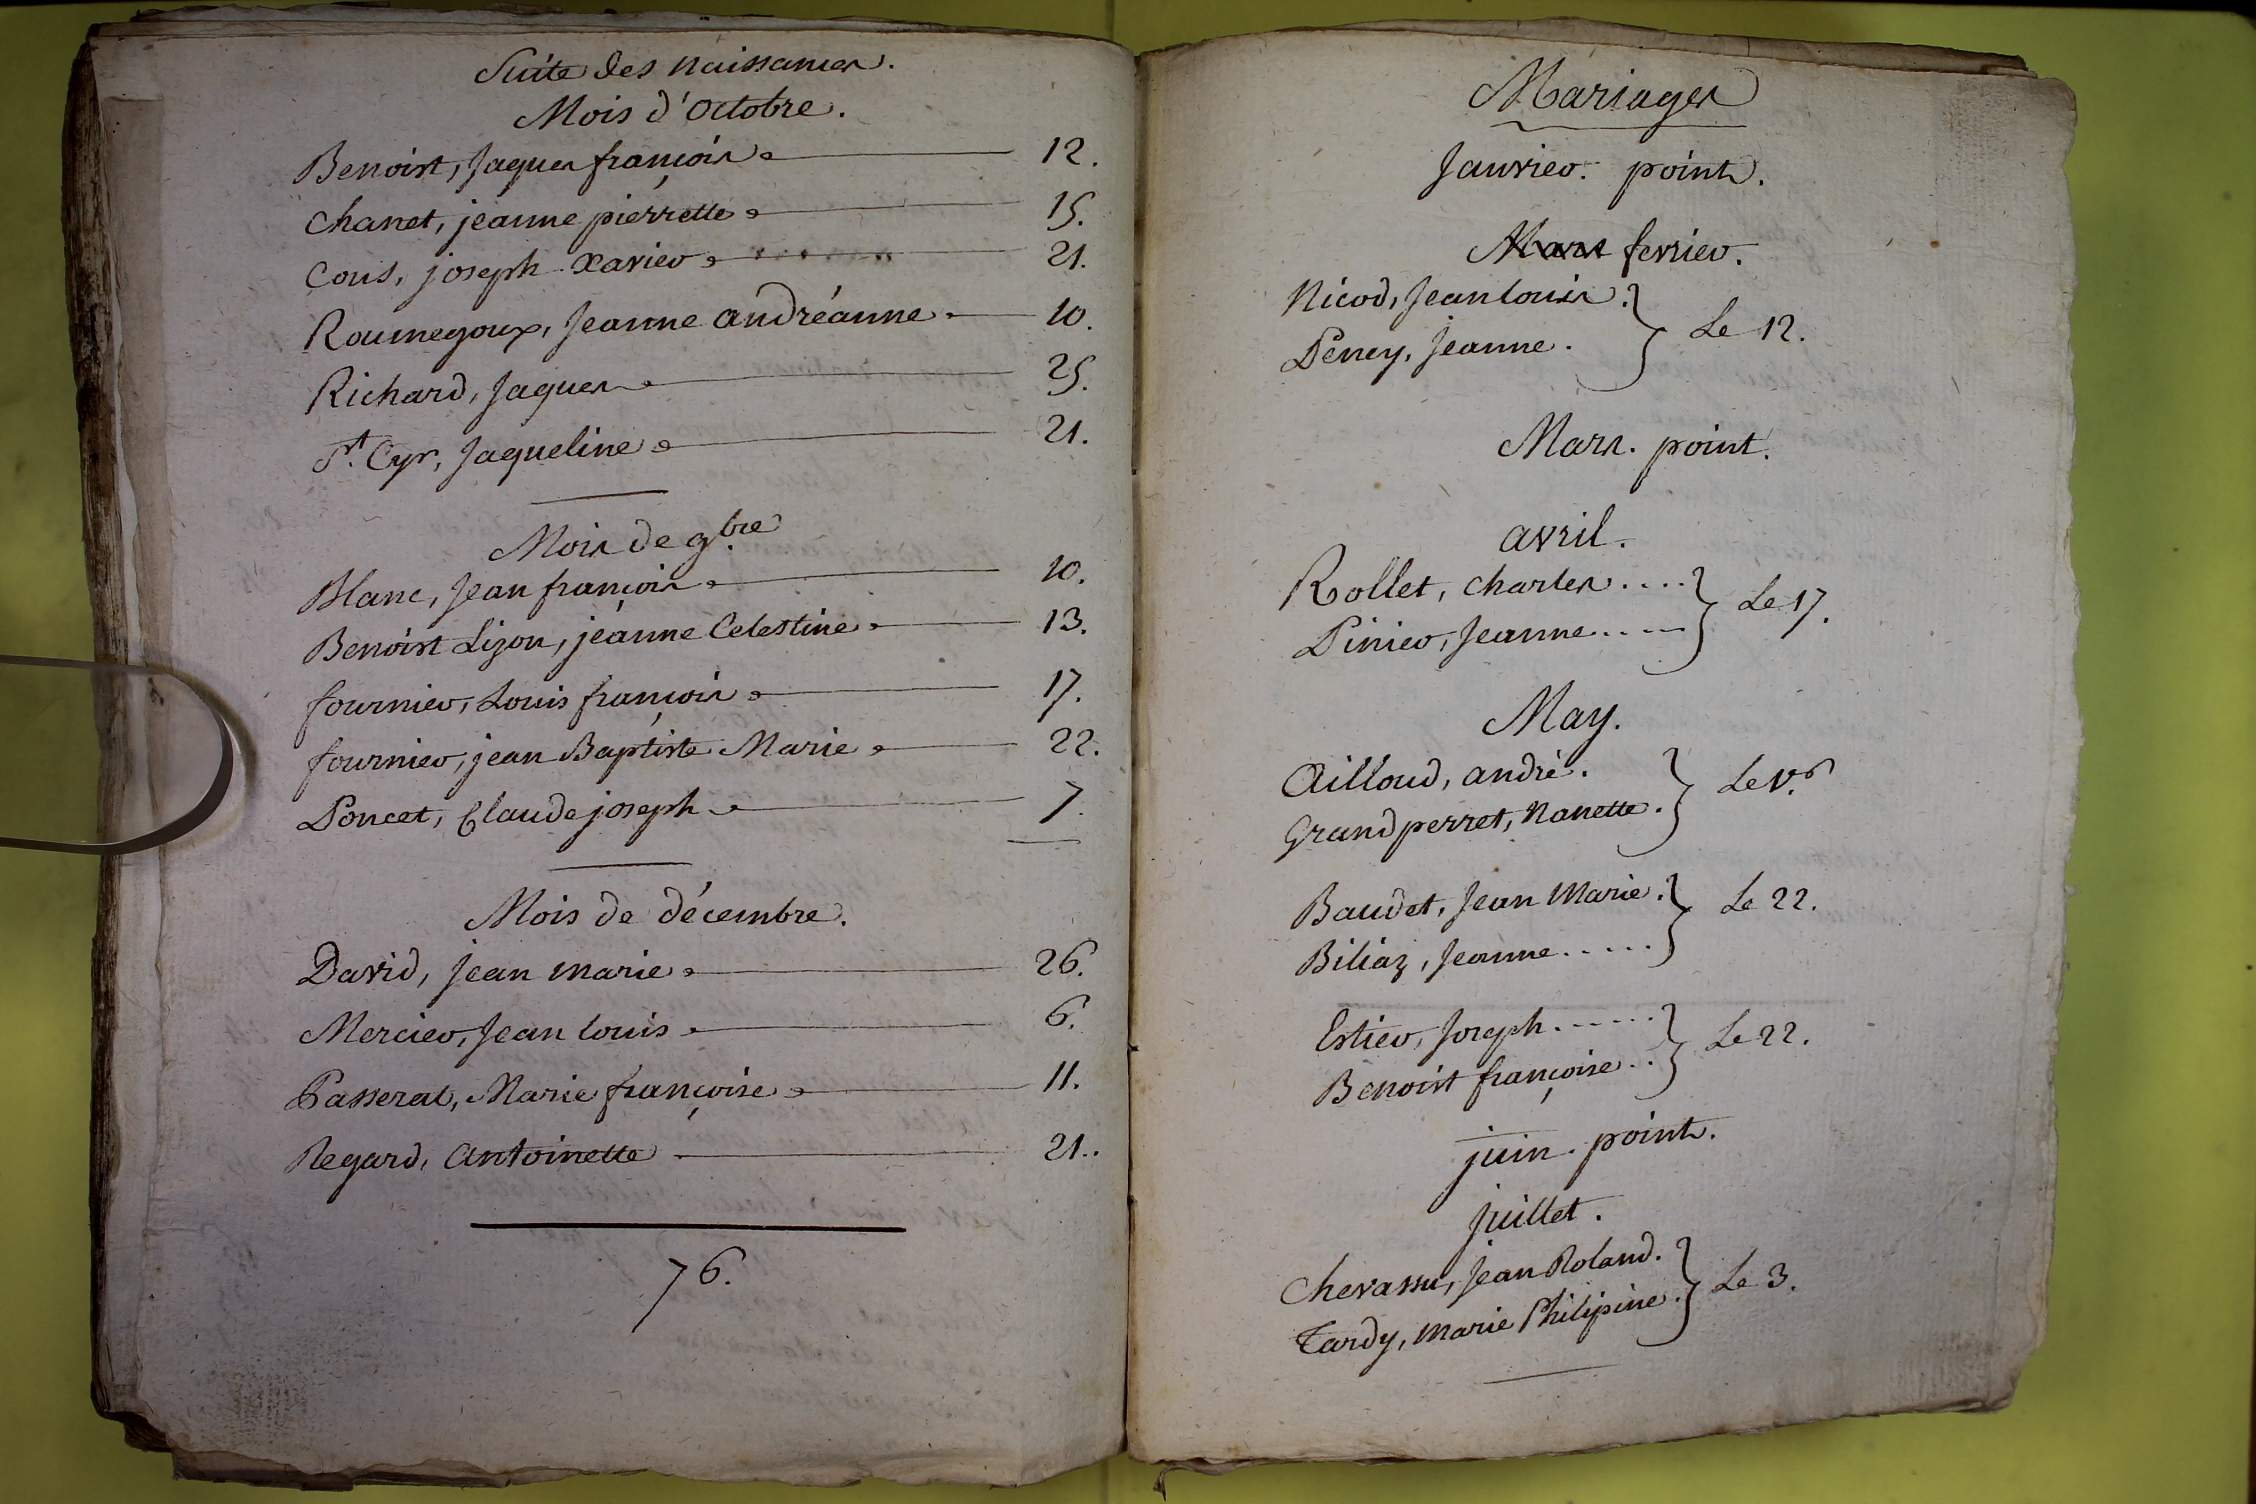 Suite des Naissances.
Mois d'Octobre.
Benoist, Jaques françois 12.
Chanet, jeanne pierrette 15.
Cons, joseph xavier 21.
Roumegoux, Jeanne andréanne 10.
Richard, Jaques 25.
St. Cyr, Jaqueline 21.
Mois de 9bre
Blanc, Jean françois 10.
Benoist Lizon, jeanne Celestine 13.
fournier, Louis françois 17.
fournier, jean Baptiste Marie 22.
Poncet, Claude joseph 7.
Mois de décembre.
David, jean marie 26.
Mercier, Jean Louis 6.
Passerat, Marie françoise 11.
Regard, Antoinette 21.
76.
Mariages
Janvier. point.
Mars fevrier.
Nicod, Jean louis. } Le 12.
Pency, Jeanne.
Mars. point.
avril.
Rollet, Charles .... } Le 17.
Pinier, Jeanne .....
May.
Ailloud, andré. } Le 1er
Grandperret, Nanette.
Baudet, Jean Marie. } Le 22.
Biliaz, Jeanne .....
Estier, Joseph ...... } Le 22.
Benoist françoise ..
juin. point.
juillet.
Chevassu, Jean Roland. } Le 3.
Tardy, marie Philipine.